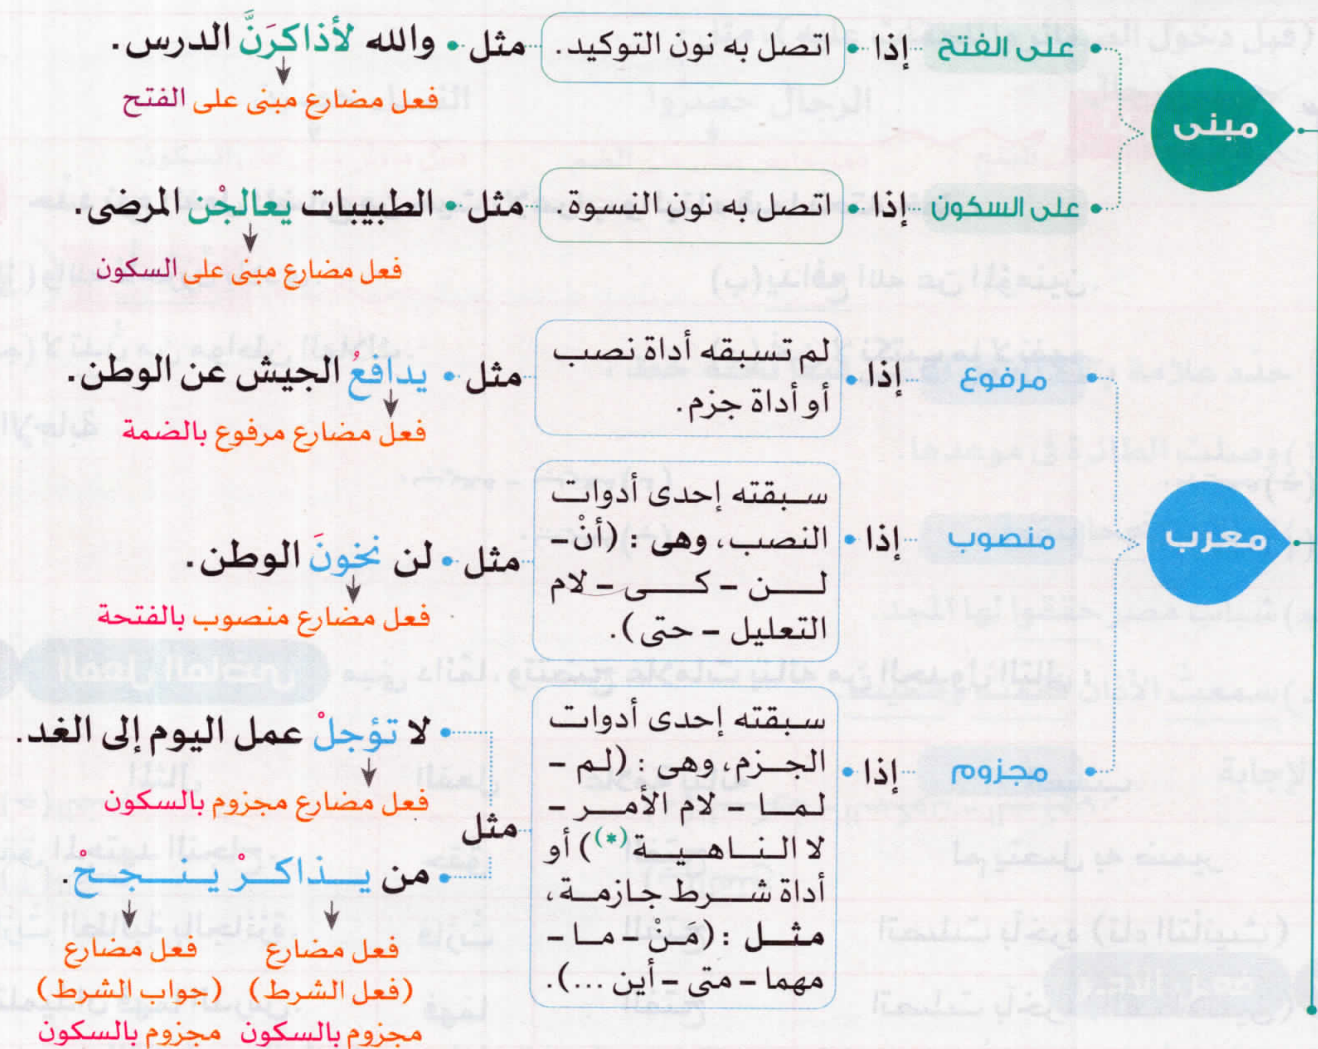 مبنى
على الفتح إذا اتصل به نون التوكيد. مثل • والله لأذاكرَنَّ الدرس.
فعل مضارع مبنى على الفتح
على السكون إذا اتصل به نون النسوة. مثل • الطبيبات يعالجْن المرضى.
فعل مضارع مبنى على السكون
معرب
مرفوع إذا
لم تسبقه أداة نصب
أو أداة جزم.
مثل • يدافعُ الجيش عن الوطن.
فعل مضارع مرفوع بالضمة
منصوب إذا
سبقته إحدى أدوات
النصب، وهى : (أنْ –
لن – كى – لام
التعليل – حتى).
مثل • لن نخونَ الوطن.
فعل مضارع منصوب بالفتحة
مجزوم إذا
سبقته إحدى أدوات
الجزم، وهى : (لم –
لما – لام الأمر –
لا الناهية(*)) أو
أداة شرط جازمة،
مثل : (مَنْ – ما –
مهما – متى – أين ...).
مثل
• لا تؤجلْ عمل اليوم إلى الغد.
فعل مضارع مجزوم بالسكون
• من يذاكرْ ينجحْ.
فعل مضارع
(فعل الشرط)
مجزوم بالسكون
فعل مضارع
(جواب الشرط)
مجزوم بالسكون